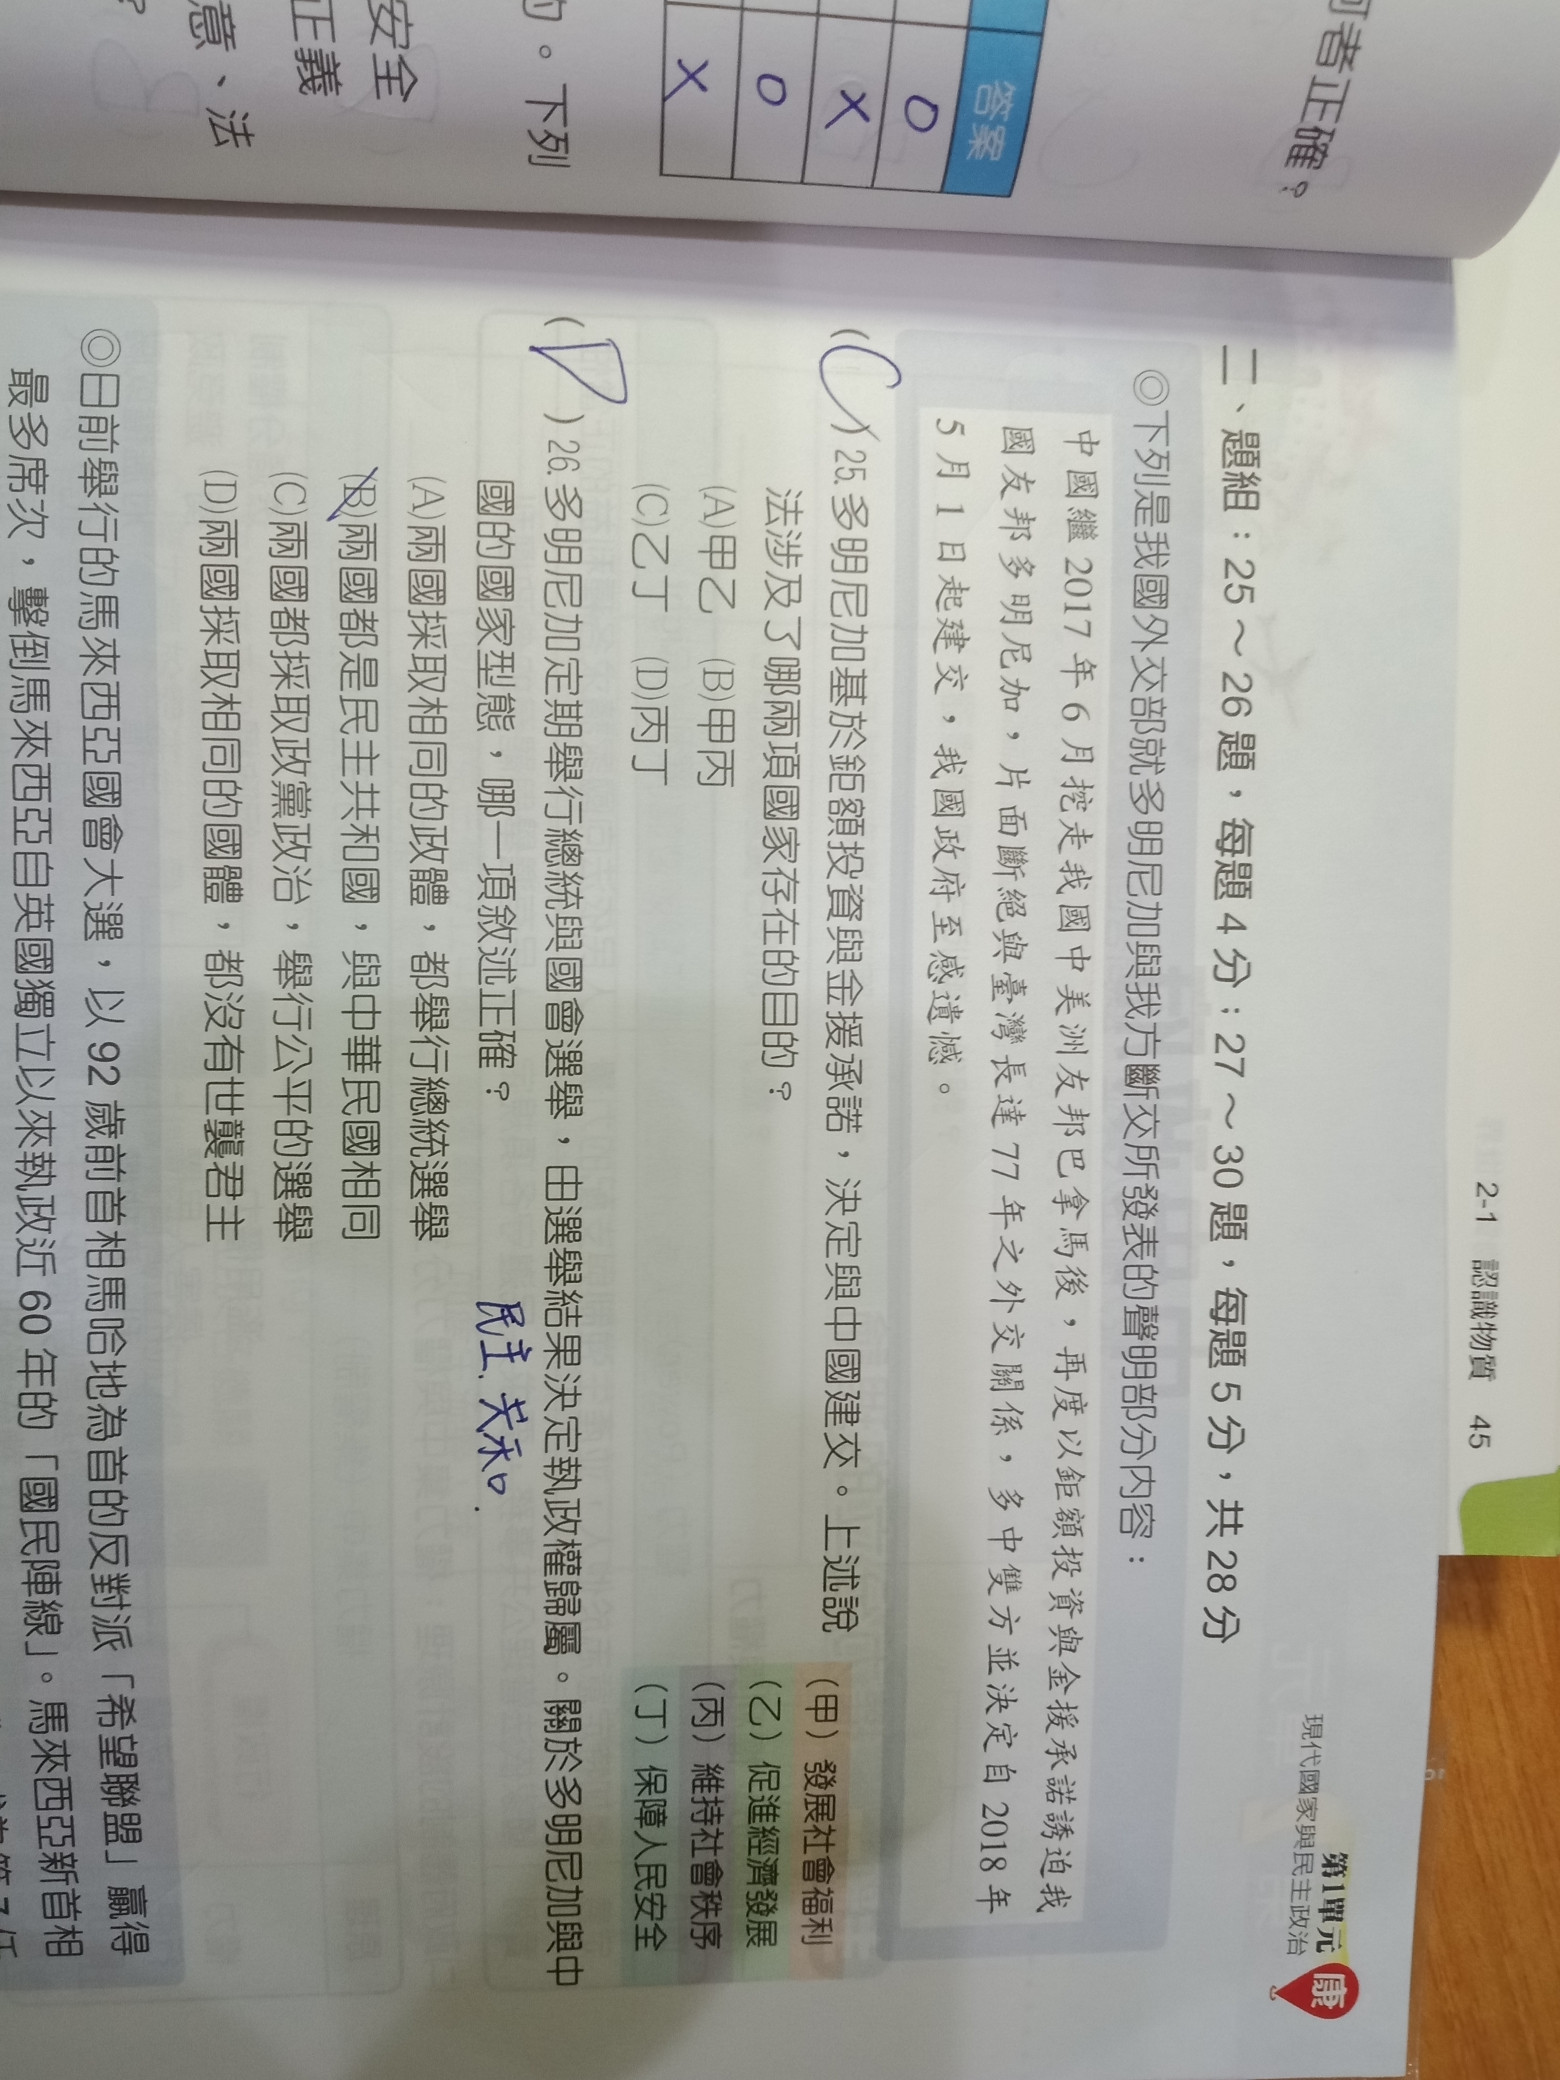 2-1 認識物質 45
第1單元
現代國家與民主政治
康
者正確?
答案
O
X
O
X
的。下列
安全
正義
意、法
二、題組:25~26題,每題4分;27~30題,每題5分,共28分
◎下列是我國外交部就多明尼加與我方斷交所發表的聲明部分內容:
中國繼2017年6月挖走我國中美洲友邦巴拿馬後,再度以鉅額投資與金援承諾誘迫我
國友邦多明尼加,片面斷絕與臺灣長達77年之外交關係,多中雙方並決定自2018年
5月1日起建交,我國政府至感遺憾。
(C)25.多明尼加基於鉅額投資與金援承諾,決定與中國建交。上述說
法涉及了哪兩項國家存在的目的?
(A)甲乙 (B)甲丙
(C)乙丁 (D)丙丁
(甲)發展社會福利
(乙)促進經濟發展
(丙)維持社會秩序
(丁)保障人民安全
(D)26.多明尼加定期舉行總統與國會選舉,由選舉結果決定執政權歸屬。關於多明尼加與中
國的國家型態,哪一項敘述正確?
民主、共和.
(A)兩國採取相同的政體,都舉行總統選舉
(B)兩國都是民主共和國,與中華民國相同
(C)兩國都採取政黨政治,舉行公平的選舉
(D)兩國採取相同的國體,都沒有世襲君主
◎日前舉行的馬來西亞國會大選,以92歲前首相馬哈地為首的反對派「希望聯盟」贏得
最多席次,擊倒馬來西亞自英國獨立以來執政近60年的「國民陣線」。馬來西亞新首相